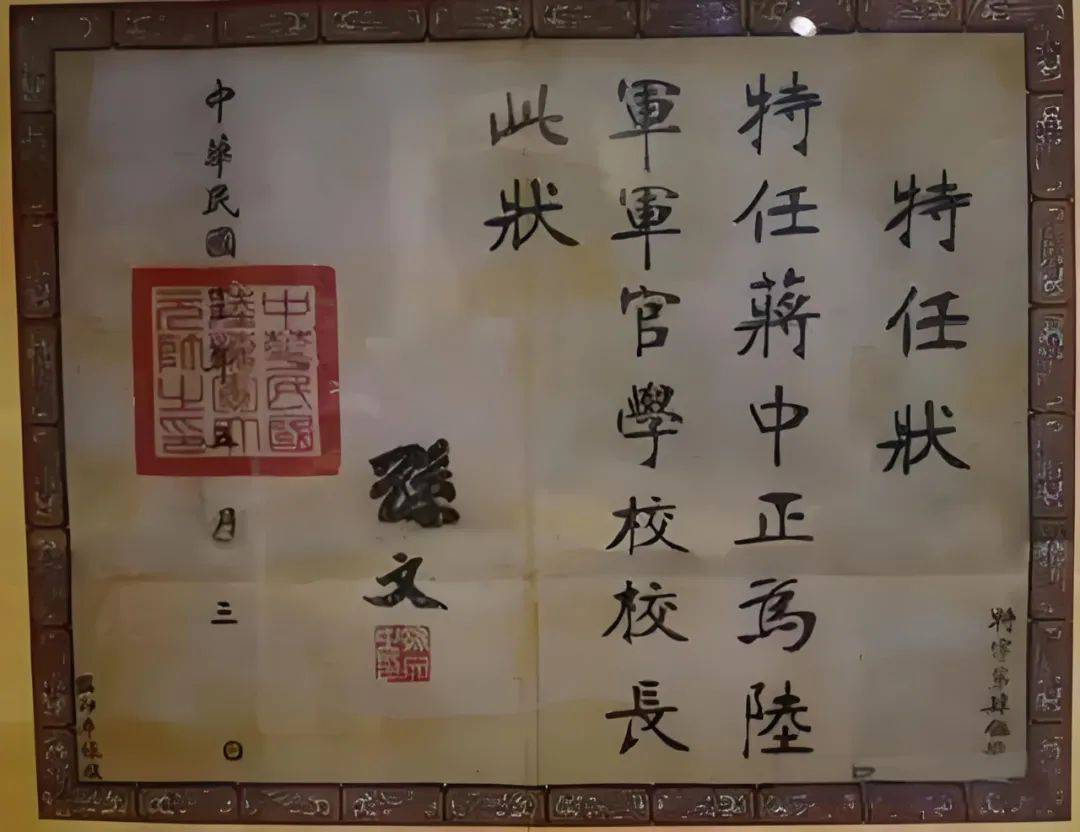 特任狀
特任蔣中正為陸
軍軍官學校校長
此狀
孫文
中華民國年五月三日
中華民國
陸海軍大
元帥之印